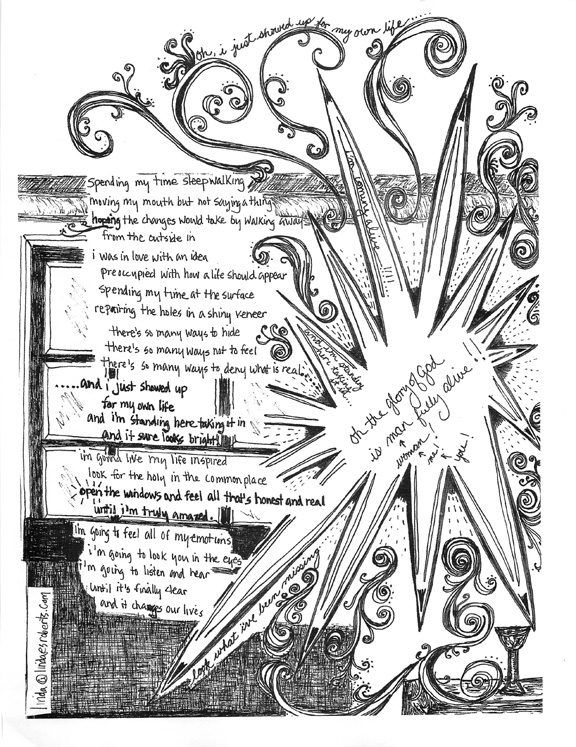 oh, i just showed up for my own life...
spending my time sleepwalking
moving my mouth but not saying a thing
hoping the changes would take by walking away
from the outside in
i was in love with an idea
preoccupied with how a life should appear
spending my time at the surface
repairing the holes in a shiny veneer
there's so many ways to hide
there's so many ways not to feel
there's so many ways to deny what is real
.....and i just showed up
for my own life
and i'm standing here taking it in
and it sure looks bright!
i'm gonna live my life inspired
look for the holy in the commonplace
open the windows and feel all that's honest and real
until i'm truly amazed.
i'm going to feel all of my emotions
i'm going to look you in the eyes
i'm going to listen and hear
until it's finally clear
and it changes our lives
i'm coming alive!!!!
and i'm standing
here taking
it in
oh the glory of God
is man fully alive!!!
woman
me!
you!
look what i've been missing
linda@lindaesroberts.com